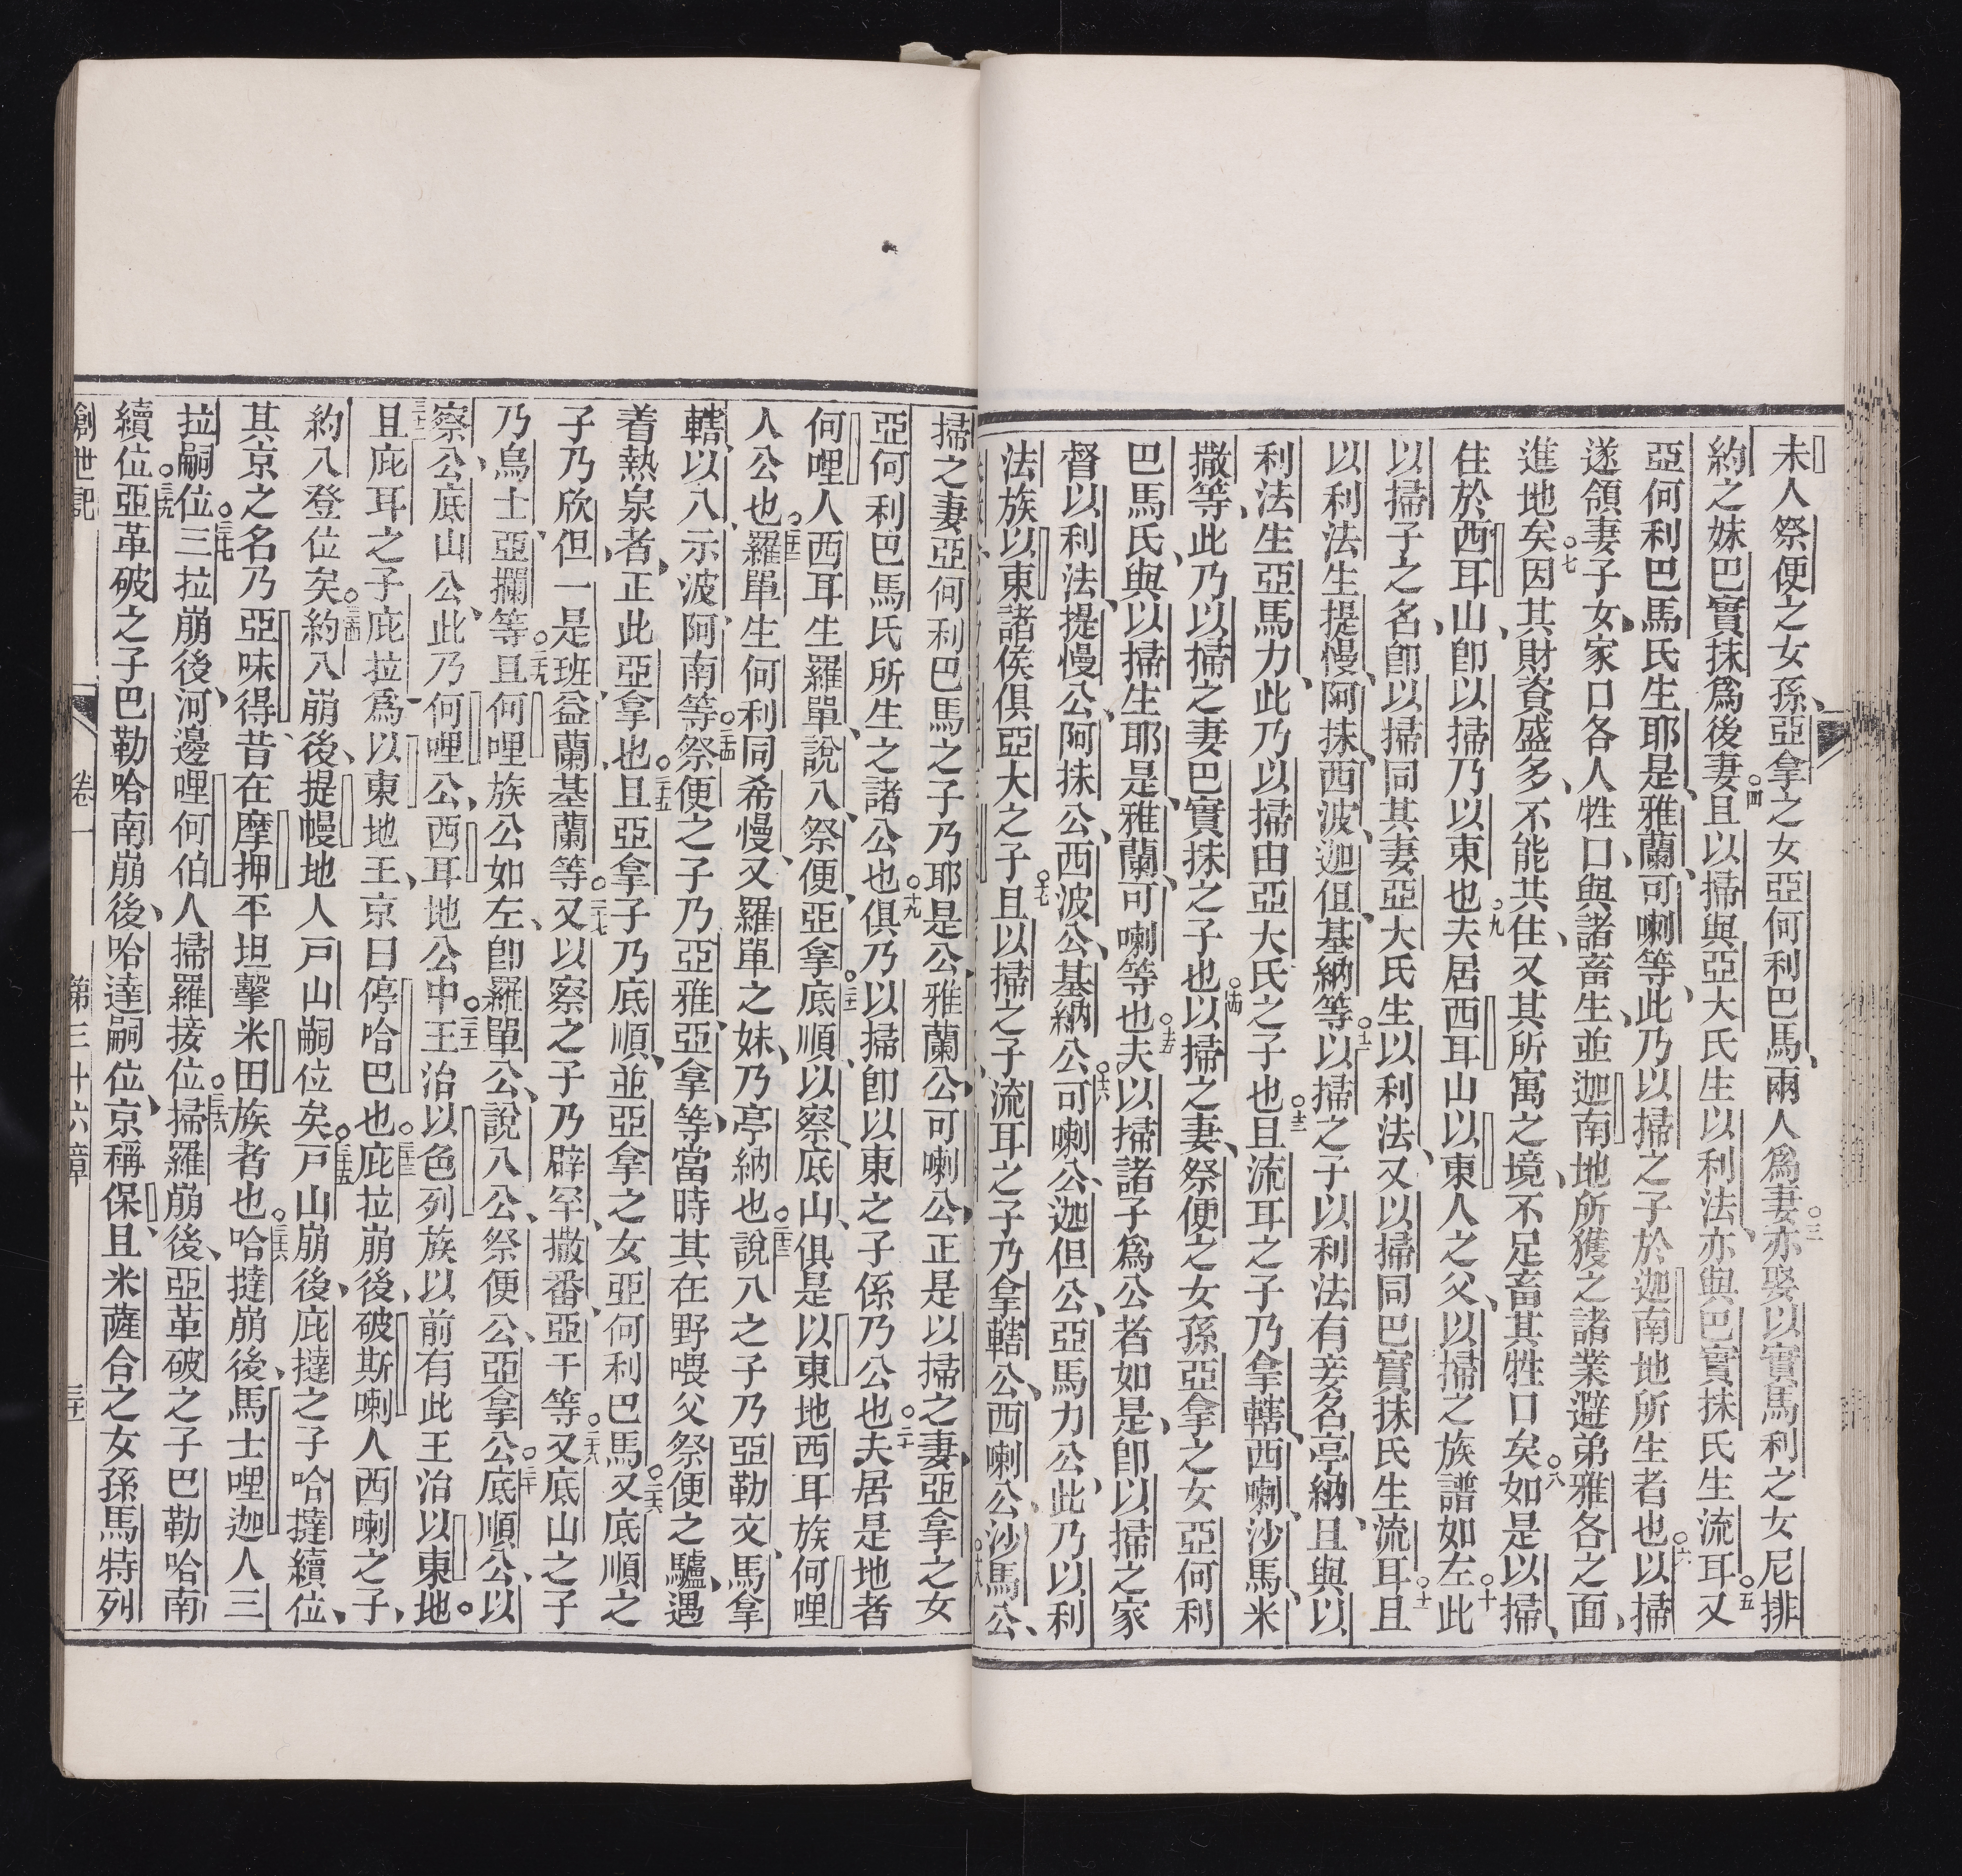 未人祭便之女孫亞拿之女亞何利巴馬兩人爲妻○三亦娶以實馬利之女尼排
約之妹巴實抹爲後妻○四且以掃與亞大氏生以利法亦與巴實抹氏生流耳○五又
亞何利巴馬氏生耶是雅蘭可喇等此乃以掃之子於迦南地所生者也○六以掃
遂領妻子女家口各人牲口與諸畜生並迦南地所獲之諸業避弟雅各之面
進地矣○七因其財資盛多不能共住又其所寓之境不足畜其牲口矣○八如是以掃
住於西耳山卽以掃乃以東也○九夫居西耳山以東人之父以掃之族譜如左○十此
以掃子之名卽以掃同其妻亞大氏生以利法又以掃同巴實抹氏生流耳○十一且
以利法生提慢阿抹西波迦但基納等○十二以掃之子以利法有妾名亭納且與以
利法生亞馬力此乃以掃由亞大氏之子也○十三且流耳之子乃拿轄西喇沙馬米
撒等此乃以掃之妻巴實抹之子也○十四以掃之妻祭便之女孫亞拿之女亞何利
巴馬氏與以掃生耶是雅蘭可喇等也○十五夫以掃諸子爲公者如是卽以掃之家
督以利法提慢公阿抹公西波公基納公○十六可喇公迦但公亞馬力公此乃以利
法族以東諸侯俱亞大之子○十七且以掃之子流耳之子乃拿轄公西喇公沙馬公
掃之妻亞何利巴馬之子乃耶是公雅蘭公可喇公正是以掃之妻亞拿之女
亞何利巴馬氏所生之諸公也○十九俱乃以掃卽以東之子係乃公也○二十夫居是地者
何哩人西耳生羅單說八祭便亞拿○二十一底順以察底山俱是以東地西耳族何哩
人公也○二十二羅單生何利同希慢又羅單之妹乃亭納也○二十三說八之子乃亞勒文馬拿
轄以八示波阿南等○二十四祭便之子乃亞雅亞拿等當時其在野喂父祭便之驢遇
着熱泉者正此亞拿也○二十五且亞拿子乃底順並亞拿之女亞何利巴馬○二十六又底順之
子乃欣但一是班益蘭基蘭等○二十七又以察之子乃辟罕撒番亞干等○二十八又底山之子
乃烏士亞攔等○二十九且何哩族公如左卽羅單公說八公祭便公亞拿公○三十底順公以
察公底山公此乃何哩公西耳地公中○三十一王治以色列族以前有此王治以東地○
三十二且庇耳之子庇拉爲以東地王京曰停哈巴也○三十三庇拉崩後破斯喇人西喇之子
約八登位矣○三十四約八崩後提幔地人戶山嗣位矣○三十五戶山崩後庇撻之子哈撻續位
其京之名乃亞味得昔在摩押平坦擊米田族者也○三十六哈撻崩後馬士哩迦人三
拉嗣位○三十七三拉崩後河邊哩何伯人掃羅接位○三十八掃羅崩後亞革破之子巴勒哈南
續位○三十九亞革破之子巴勒哈南崩後哈達嗣位京稱保且米薩合之女孫馬特列
創世記 卷一 第三十六章